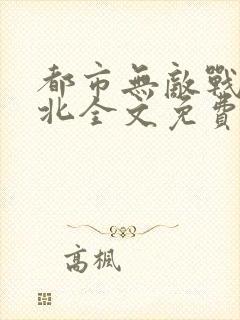 都市無敵戰
北全文免費
高楓